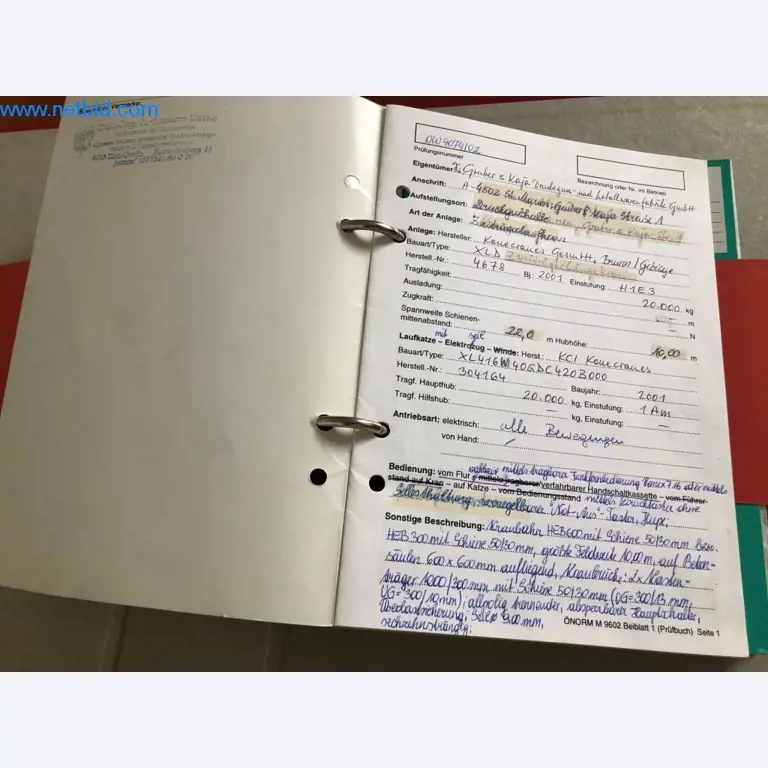 www.netbid.com
OW4074/02
Prüfungsnummer
Bezeichnung oder Nr. im Betrieb
Eigentümer: Gruber & Kaja Druckguss- und Metallwarenfabrik GmbH
Anschrift: A-4502 St. Marien, Gruber & Kaja Straße 1
Aufstellungsort: Druckgußhalle neu, Gruber & Kaja-Str. 1
Art der Anlage: Zweiträgerlaufkran
Anlage: Hersteller: Konecranes Ges.m.b.H., Brunn/Gebirge
Bauart/Type: XLD
Herstell.-Nr.: 4678 Bj.: 2001 Einstufung: H1E3
Tragfähigkeit: 20.000 kg
Ausladung: — m
Zugkraft: — N
Spannweite Schienen-
mittenabstand: 22,0 m Hubhöhe: 10,00 m
mit seil
Laufkatze – Elektrozug – Winde: Herst.: KCI Konecranes
Bauart/Type: XL416W40GDC420B000
Herstell.-Nr.: 304164 Baujahr: 2001
Tragf. Haupthub: 20.000 kg, Einstufung: 1Am
Tragf. Hilfshub: — kg, Einstufung: —
Antriebsart: elektrisch: alle Bewegungen
von Hand: /
Bedienung: vom Flur wahlweise mittels tragbarer Funkfernbedienung 716 oder mittels
mittels tragbarer/verfahrbarer Handschaltkassette – vom Führer-
stand auf Kran – auf Katze – vom Bedienungsstand mittels Drucktaster ohne
Selbsthaltung, verriegelbarer "Not-Aus"-Taster, Hupe;
Sonstige Beschreibung: Kranbahn HEB600 mit Schiene 50/30mm bzw.
HEB 300 mit Schiene 50/30mm, größte Feldweite 10,00m, auf Beton-
säulen 600 x 600mm aufliegend, Kranbrücke: 2x Kasten-
träger 1000/300mm mit Schiene 50/30mm (OG=300/13mm,
UG=300/10mm); allpolig trennender, absperrbarer Hauptschalter,
Überlastsicherung; Seil 9,00mm,
sechzehnsträngig;
ÖNORM M 9602 Beiblatt 1 (Prüfbuch) Seite 1